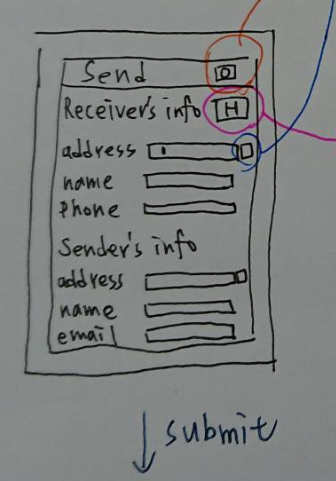 Send
Receiver's info H
address
name
Phone
Sender's info
address
name
email
submit